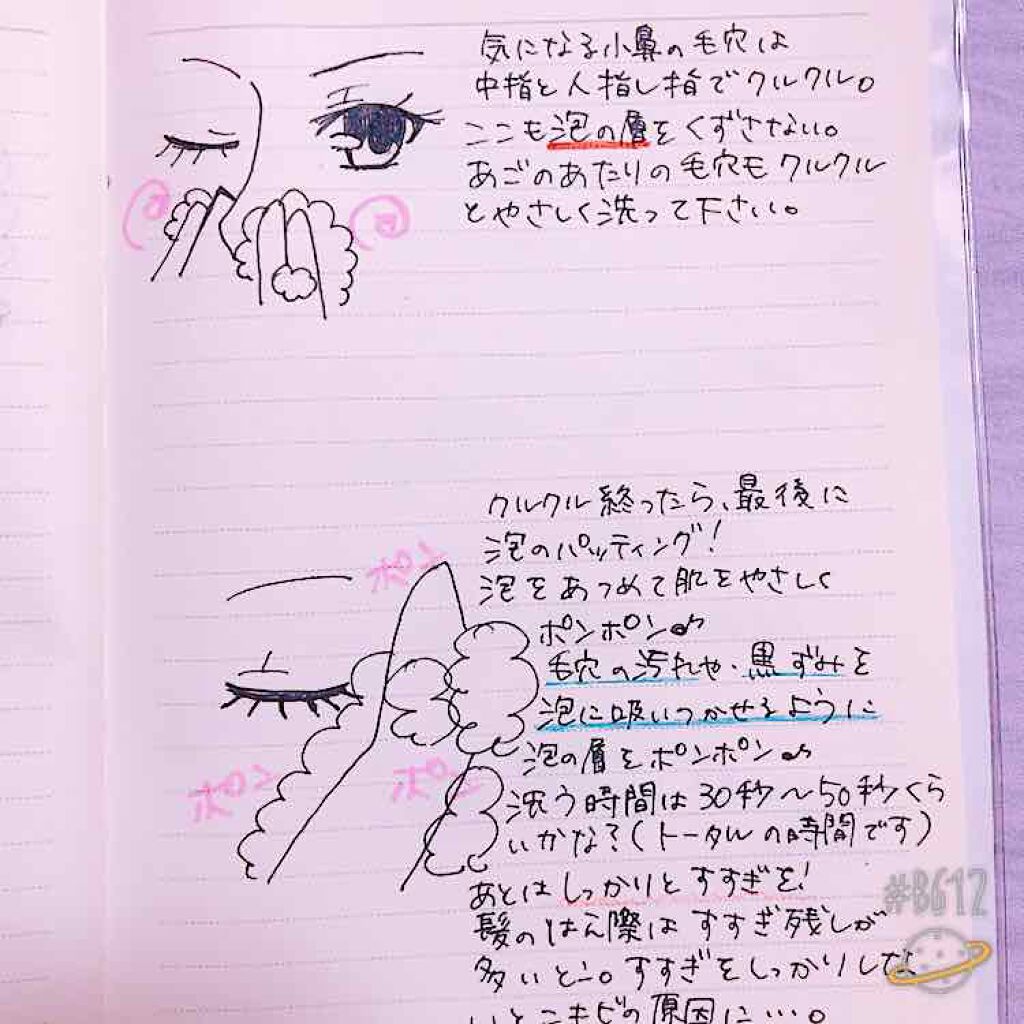 気になる小鼻の毛穴は
中指と人指し指でクルクル。
ここも泡の層をくずさない。
あごのあたりの毛穴もクルクル
とやさしく洗って下さい。
クルクル終ったら、最後に
泡のパッティング!
泡をあつめて肌をやさしく
ポンポン♪
毛穴の汚れや・黒ずみを
泡に吸いつかせるように
泡の層をポンポン♪
洗う時間は30秒〜50秒くら
いかな?(トータルの時間です)
あとはしっかりとすすぎを!
髪のはえ際はすすぎ残しが
多いとこ。すすぎをしっかりしな
いとニキビの原因に…。
ポン
ポン
ポン
#B612